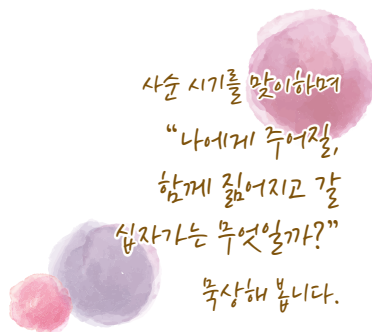 사순 시기를 맞이하며
“나에게 주어질,
함께 짊어지고 갈
십자가는 무엇일까?”
묵상해 봅니다.